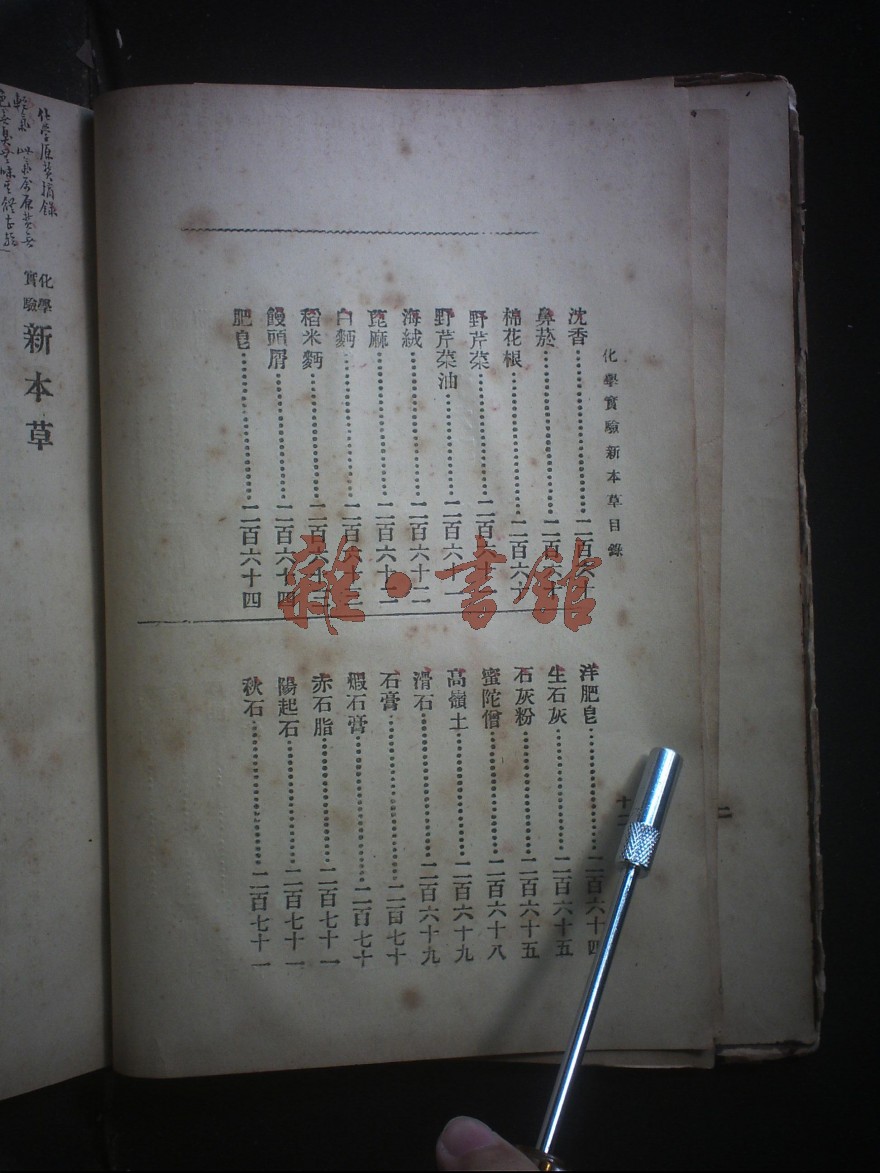 化學實驗新本草目錄
沈香……二百六十
鼻菸……二百六十
棉花根……二百六十
野芹菜……二百六十一
野芹菜油……二百六十一
海絨……二百六十二
萞麻……二百六十二
白麪……二百六十三
稻米麪……二百六十三
饅頭屑……二百六十四
肥皂……二百六十四
洋肥皂……二百六十四
生石灰……二百六十五
石灰粉……二百六十五
蜜陀僧……二百六十八
高嶺土……二百六十九
滑石……二百六十九
石膏……二百七十
煆石膏……二百七十
赤石脂……二百七十一
陽起石……二百七十一
秋石……二百七十一
十二
雜·書館
化學實驗新本草
化學原質摘錄
輕氣